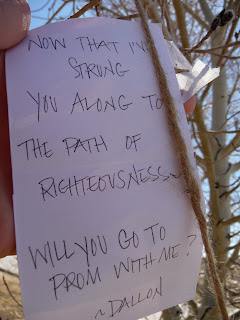 NOW THAT I'VE
STRUNG
YOU ALONG TO
THE PATH OF
RIGHTEOUSNESS~
WILL YOU GO TO
PROM WITH ME?
~DALLON